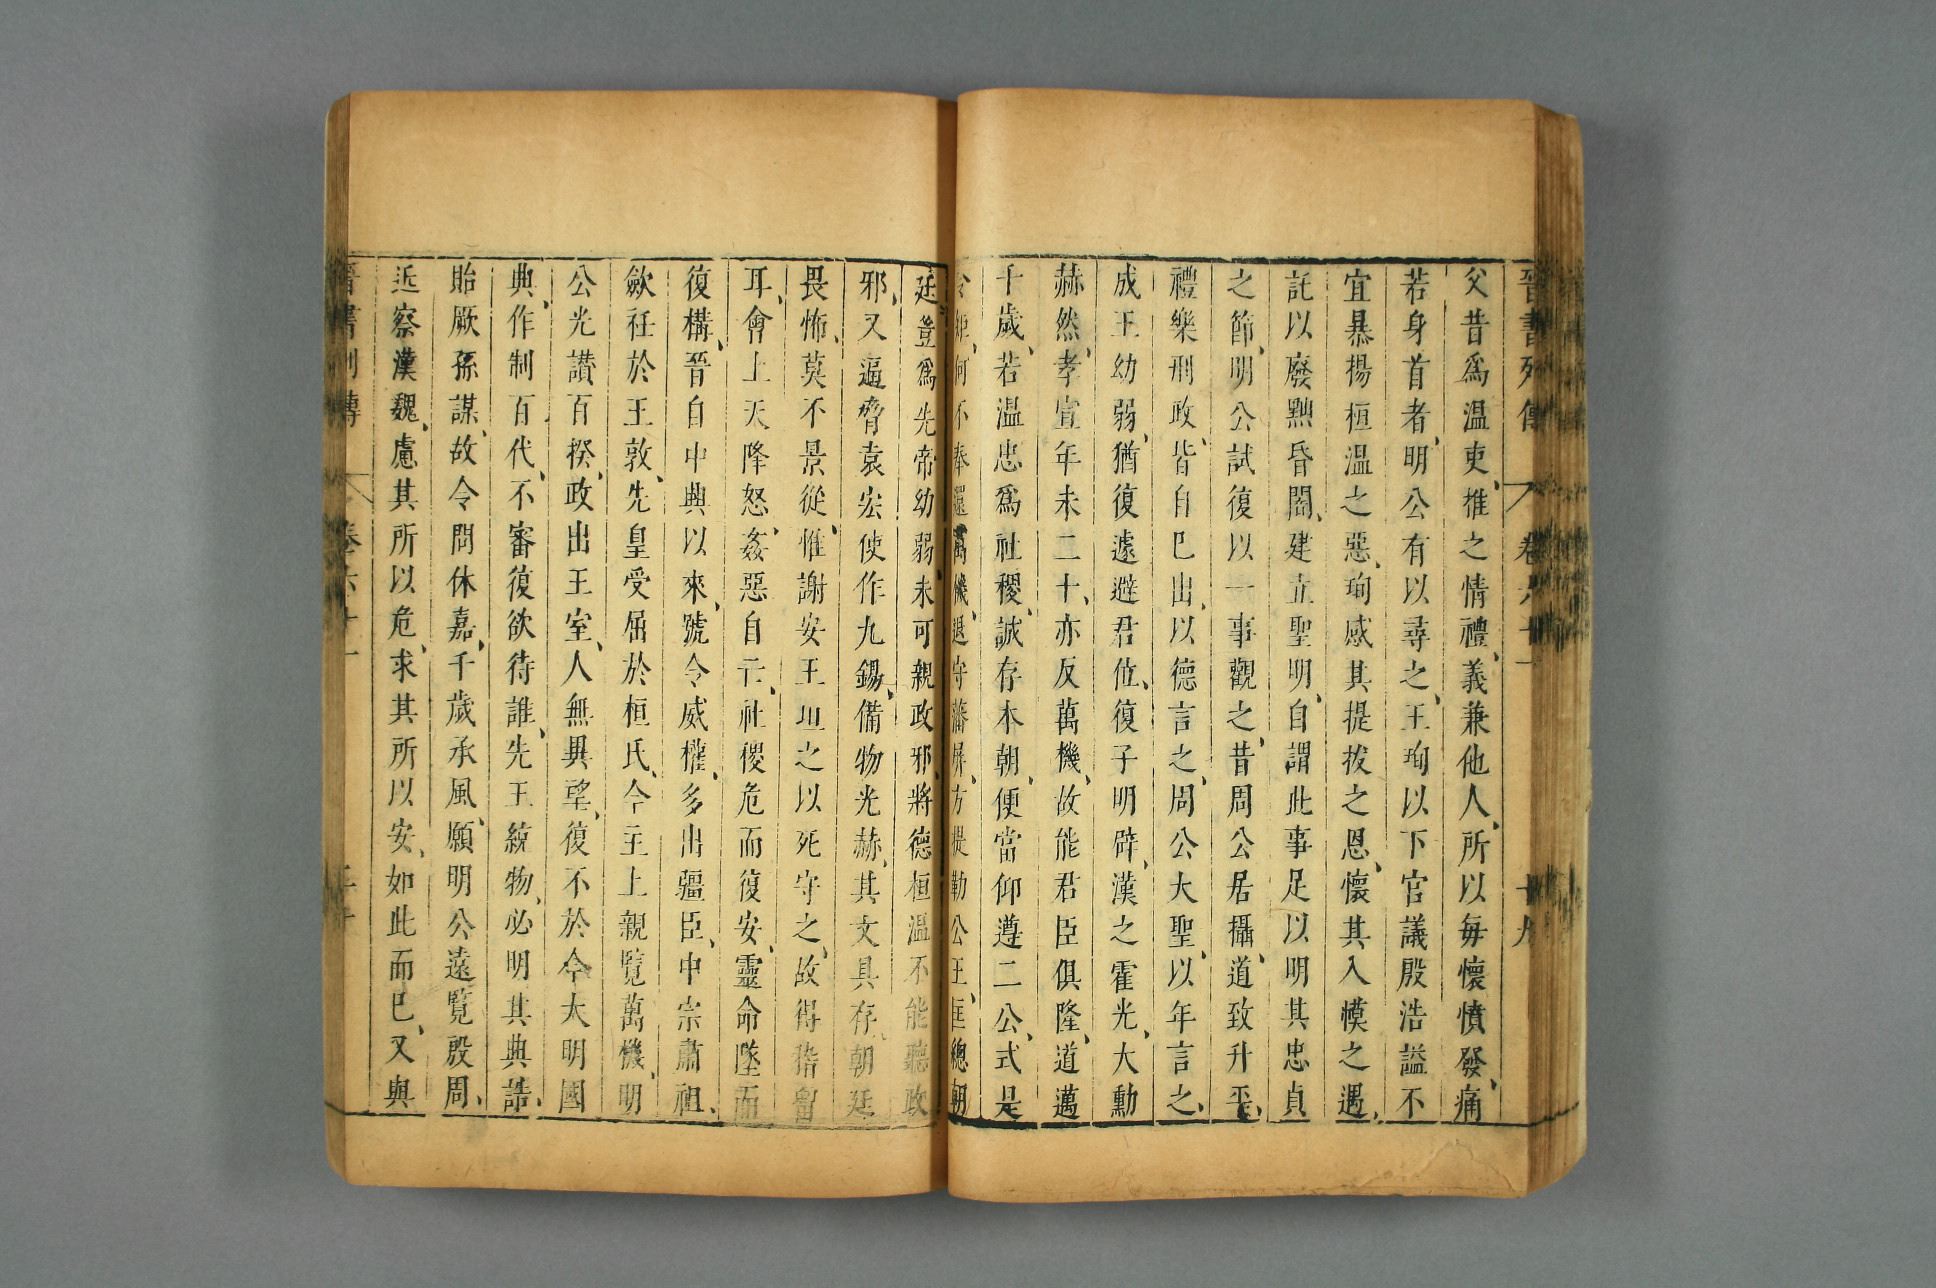 晉書列傳 卷六十一 十九
父昔爲温吏、推之情禮、義兼他人、所以每懷憤發、痛
若身首者、明公有以尋之、王珣以下官議殷浩謚不
宜暴揚桓温之惡、珣感其提拔之恩、懷其入幙之遇、
託以廢黜昏闇、建立聖明、自謂此事足以明其忠貞
之節、明公試復以一事觀之、昔周公居攝、道致升平、
禮樂刑政、皆自已出、以德言之、周公大聖、以年言之、
成王幼弱、猶復遽避君位、復子明辟、漢之霍光、大勳
赫然、孝宣年未二十、亦反萬機、故能君臣俱隆、道邁
千歲、若温忠爲社稷、誠存本朝、便當仰遵二公、式是
令矩、何不奉還萬機、退守藩屏、方提勒公王、匡總朝
廷、豈爲先帝幼弱、未可親政邪、將德桓温不能聽政
邪、又逼脅袁宏使作九錫、備物光赫、其文具存、朝廷
畏怖、莫不景從、惟謝安王坦之以死守之、故得稽留
耳、會上天降怒、姦惡自亡、社稷危而復安、靈命墜而
復構、晉自中興以來、號令威權、多出彊臣、中宗肅祖、
歛衽於王敦、先皇受屈於桓氏、今主上親覽萬機、明
公光讃百揆、政出王室、人無異望、復不於今大明國
典、作制百代、不審復欲待誰、先王統物、必明其典誥、
貽厥孫謀、故令問休嘉、千歲承風、願明公遠覽殷周、
近察漢魏、慮其所以危、求其所以安、如此而已、又與
晉書列傳 卷六十一 二十